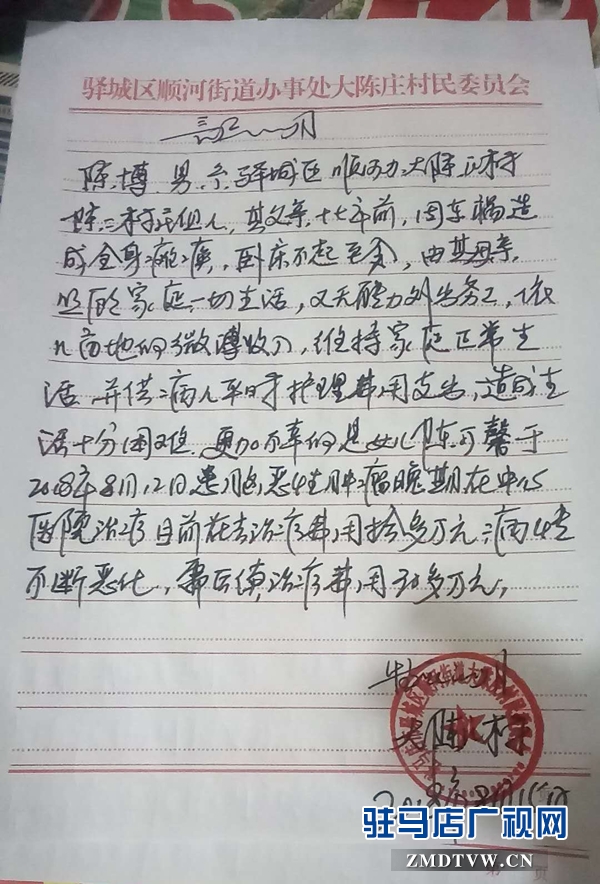 驿城区顺河街道办事处大陈庄村民委员会
证明
陈博 男,系驿城区顺河办大陈庄村
陈 村民组人,其父亲,十七年前,因车祸造
成全身瘫痪,卧床不起至今,由其母亲
照顾家庭一切生活,又无能力外出务工,依
几亩地的微薄收入,维持家庭正常生
活,并供病人平时护理费用支出,造成生
活十分困难。更加不幸的是女儿陈可馨于
2018年8月12日患 恶性肿瘤晚期在中心
医院治疗目前花去治疗费用拾多万元,病情
不断恶化,需后续治疗费用30多万元。
特此证明
大陈 村
2018年 月15日
驻马店广视网
ZMDTVW.CN
第 页